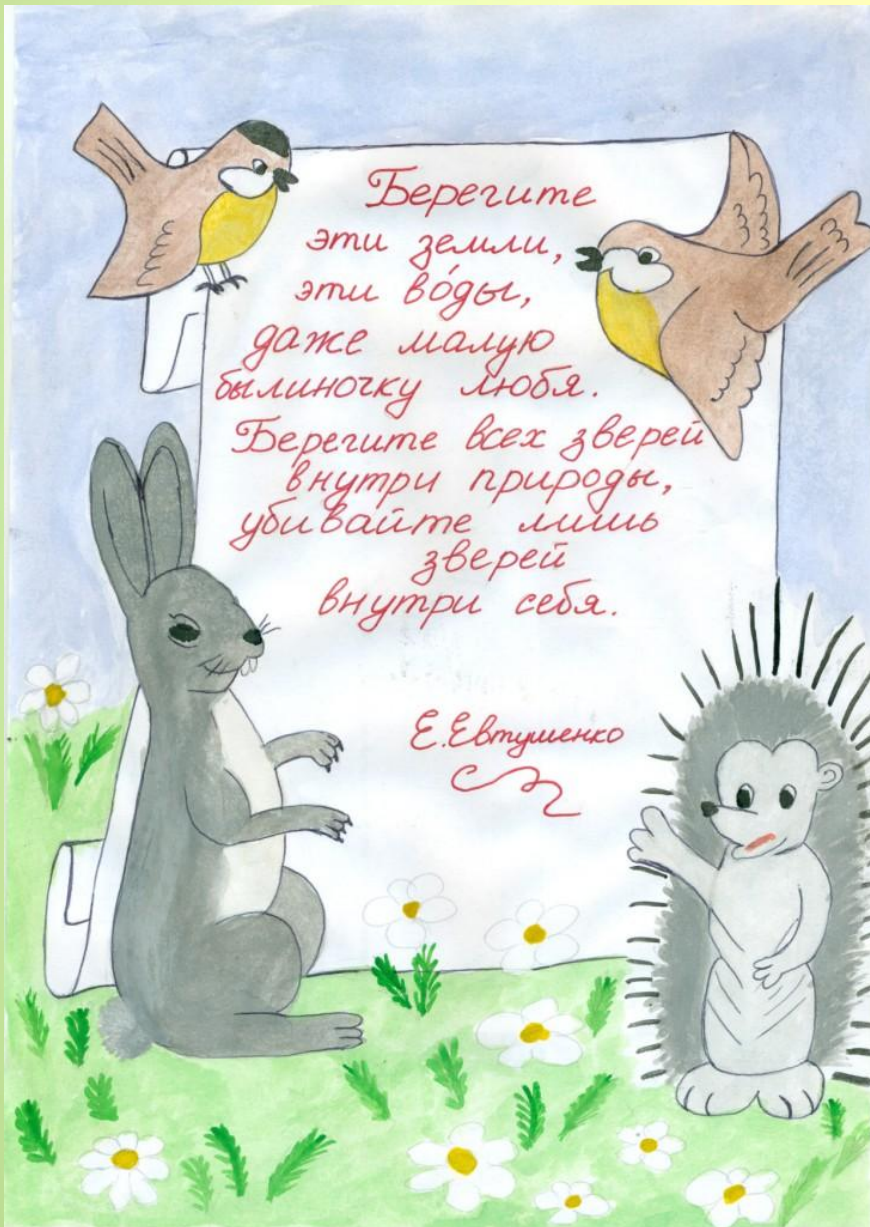 Берегите
эти земли,
эти во́ды,
даже малую
былиночку любя.
Берегите всех зверей
внутри природы,
убивайте лишь
зверей
внутри себя.
Е.Евтушенко